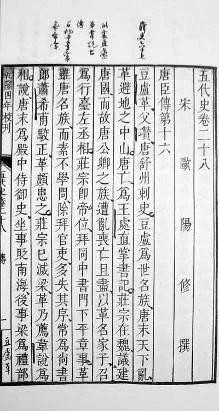 五代史卷二十八
宋歐陽修撰
唐臣傳第十六
豆盧革父瓚唐舒州刺史豆盧爲世名族唐末天下亂
革避地之中山唐亡爲王處直掌書記莊宗在魏議建
唐國而故唐公卿之族遭亂喪亡且盡以革名家子召
爲行臺左丞相莊宗即帝位拜同中書門下平章事革
雖唐名族而素不學問除拜官吏多失其序常爲尚書
郎蕭希甫駁正革頗患之莊宗已滅梁革乃薦韋說爲
相說唐末爲殿中侍御史坐事貶南海後事梁爲禮部
乾隆四年校刊
五代史卷二十八 傳 一